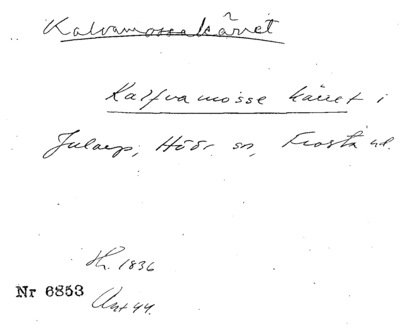 Kalvamossekärret
Kalfvamosse kärret i
Jularp, Höör sn, Frosta hd.
Hr. 1836
Nr 6853
Ant 44.